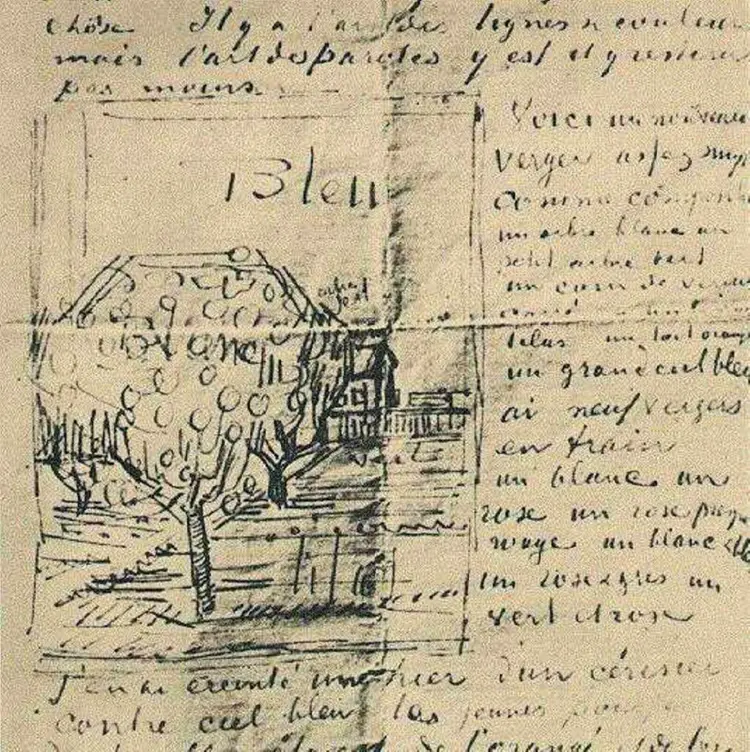 chose. Il y a l'art des lignes & couleurs
mais l'art des paroles y est et y restera
pas moins.
Bleu
Blanc
vert
Voici un nouveau
verger assez simple
comme composition
un arbre blanc un
petit arbre vert
un carré de verdure
lilas un toit orangé
un grand ciel bleu
ai neuf vergers
en train
un blanc un
rose un rose presque
rouge un blanc &
un rose & gris un
vert et rose
J'en ai éreinté un hier d'un cérisier
contre ciel bleu les jeunes
de l'orangé